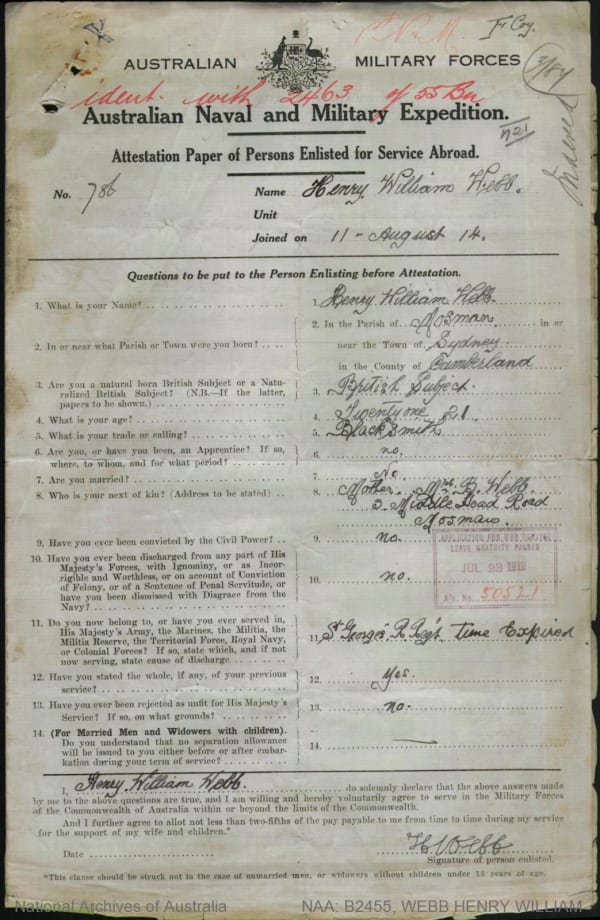 F Coy.
AUSTRALIAN MILITARY FORCES
3/84
ident. with 2463 of 55 Bn
Australian Naval and Military Expedition.
Attestation Paper of Persons Enlisted for Service Abroad.
No. 786
Name Henry William Webb.
Unit
Joined on 11 - August 14.
Questions to be put to the Person Enlisting before Attestation.
1. What is your Name? 1. Henry William Webb.
2. In or near what Parish or Town were you born? 2. In the Parish of Mosman in or
near the Town of Sydney
in the County of Cumberland
3. Are you a natural born British Subject or a Natu-
ralized British Subject? (N.B.—If the latter,
papers to be shown.) 3. British Subject.
4. What is your age? 4. Twenty one 21
5. What is your trade or calling? 5. Blacksmith
6. Are you, or have you been, an Apprentice? If so,
where, to whom, and for what period? 6. no.
7. Are you married? 7. No
8. Who is your next of kin? (Address to be stated) 8. Mother. Mrs B. Webb.
3. Middle Head Road
Mosman.
9. Have you ever been convicted by the Civil Power? 9. no.
10. Have you ever been discharged from any part of His
Majesty's Forces, with Ignominy, or as Incor-
rigible and Worthless, or on account of Conviction
of Felony, or of a Sentence of Penal Servitude, or
have you been dismissed with Disgrace from the
Navy? 10. no.
APPLICATION FOR WAR
LEAVE GRATUITY PASSED
JUL 23
A/c. No. 50521
11. Do you now belong to, or have you ever served in,
His Majesty's Army, the Marines, the Militia, the
Militia Reserve, the Territorial Force, Royal Navy,
or Colonial Forces? If so, state which, and if not
now serving, state cause of discharge 11. St George's R. Reg't Time Expired
12. Have you stated the whole, if any, of your previous
service? 12. Yes.
13. Have you ever been rejected as unfit for His Majesty's
Service? If so, on what grounds? 13. no.
14. (For Married Men and Widowers with children).
Do you understand that no separation allowance
will be issued to you either before or after embar-
kation during your term of service? 14.
I, Henry William Webb. do solemnly declare that the above answers made
by me to the above questions are true, and I am willing and hereby voluntarily agree to serve in the Military Forces
of the Commonwealth of Australia within or beyond the limits of the Commonwealth.
And I further agree to allot not less than two-fifths of the pay payable to me from time to time during my service
for the support of my wife and children.*
H W Webb
Date Signature of person enlisted.
*This clause should be struck out in the case of unmarried men, or widowers without children under 18 years of age.
National Archives of Australia NAA: B2455, WEBB HENRY WILLIAM